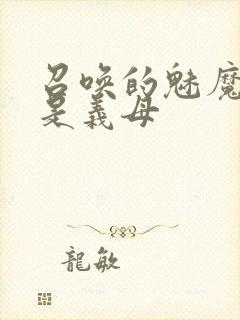 召唤的魅魔
是義母
龍敏